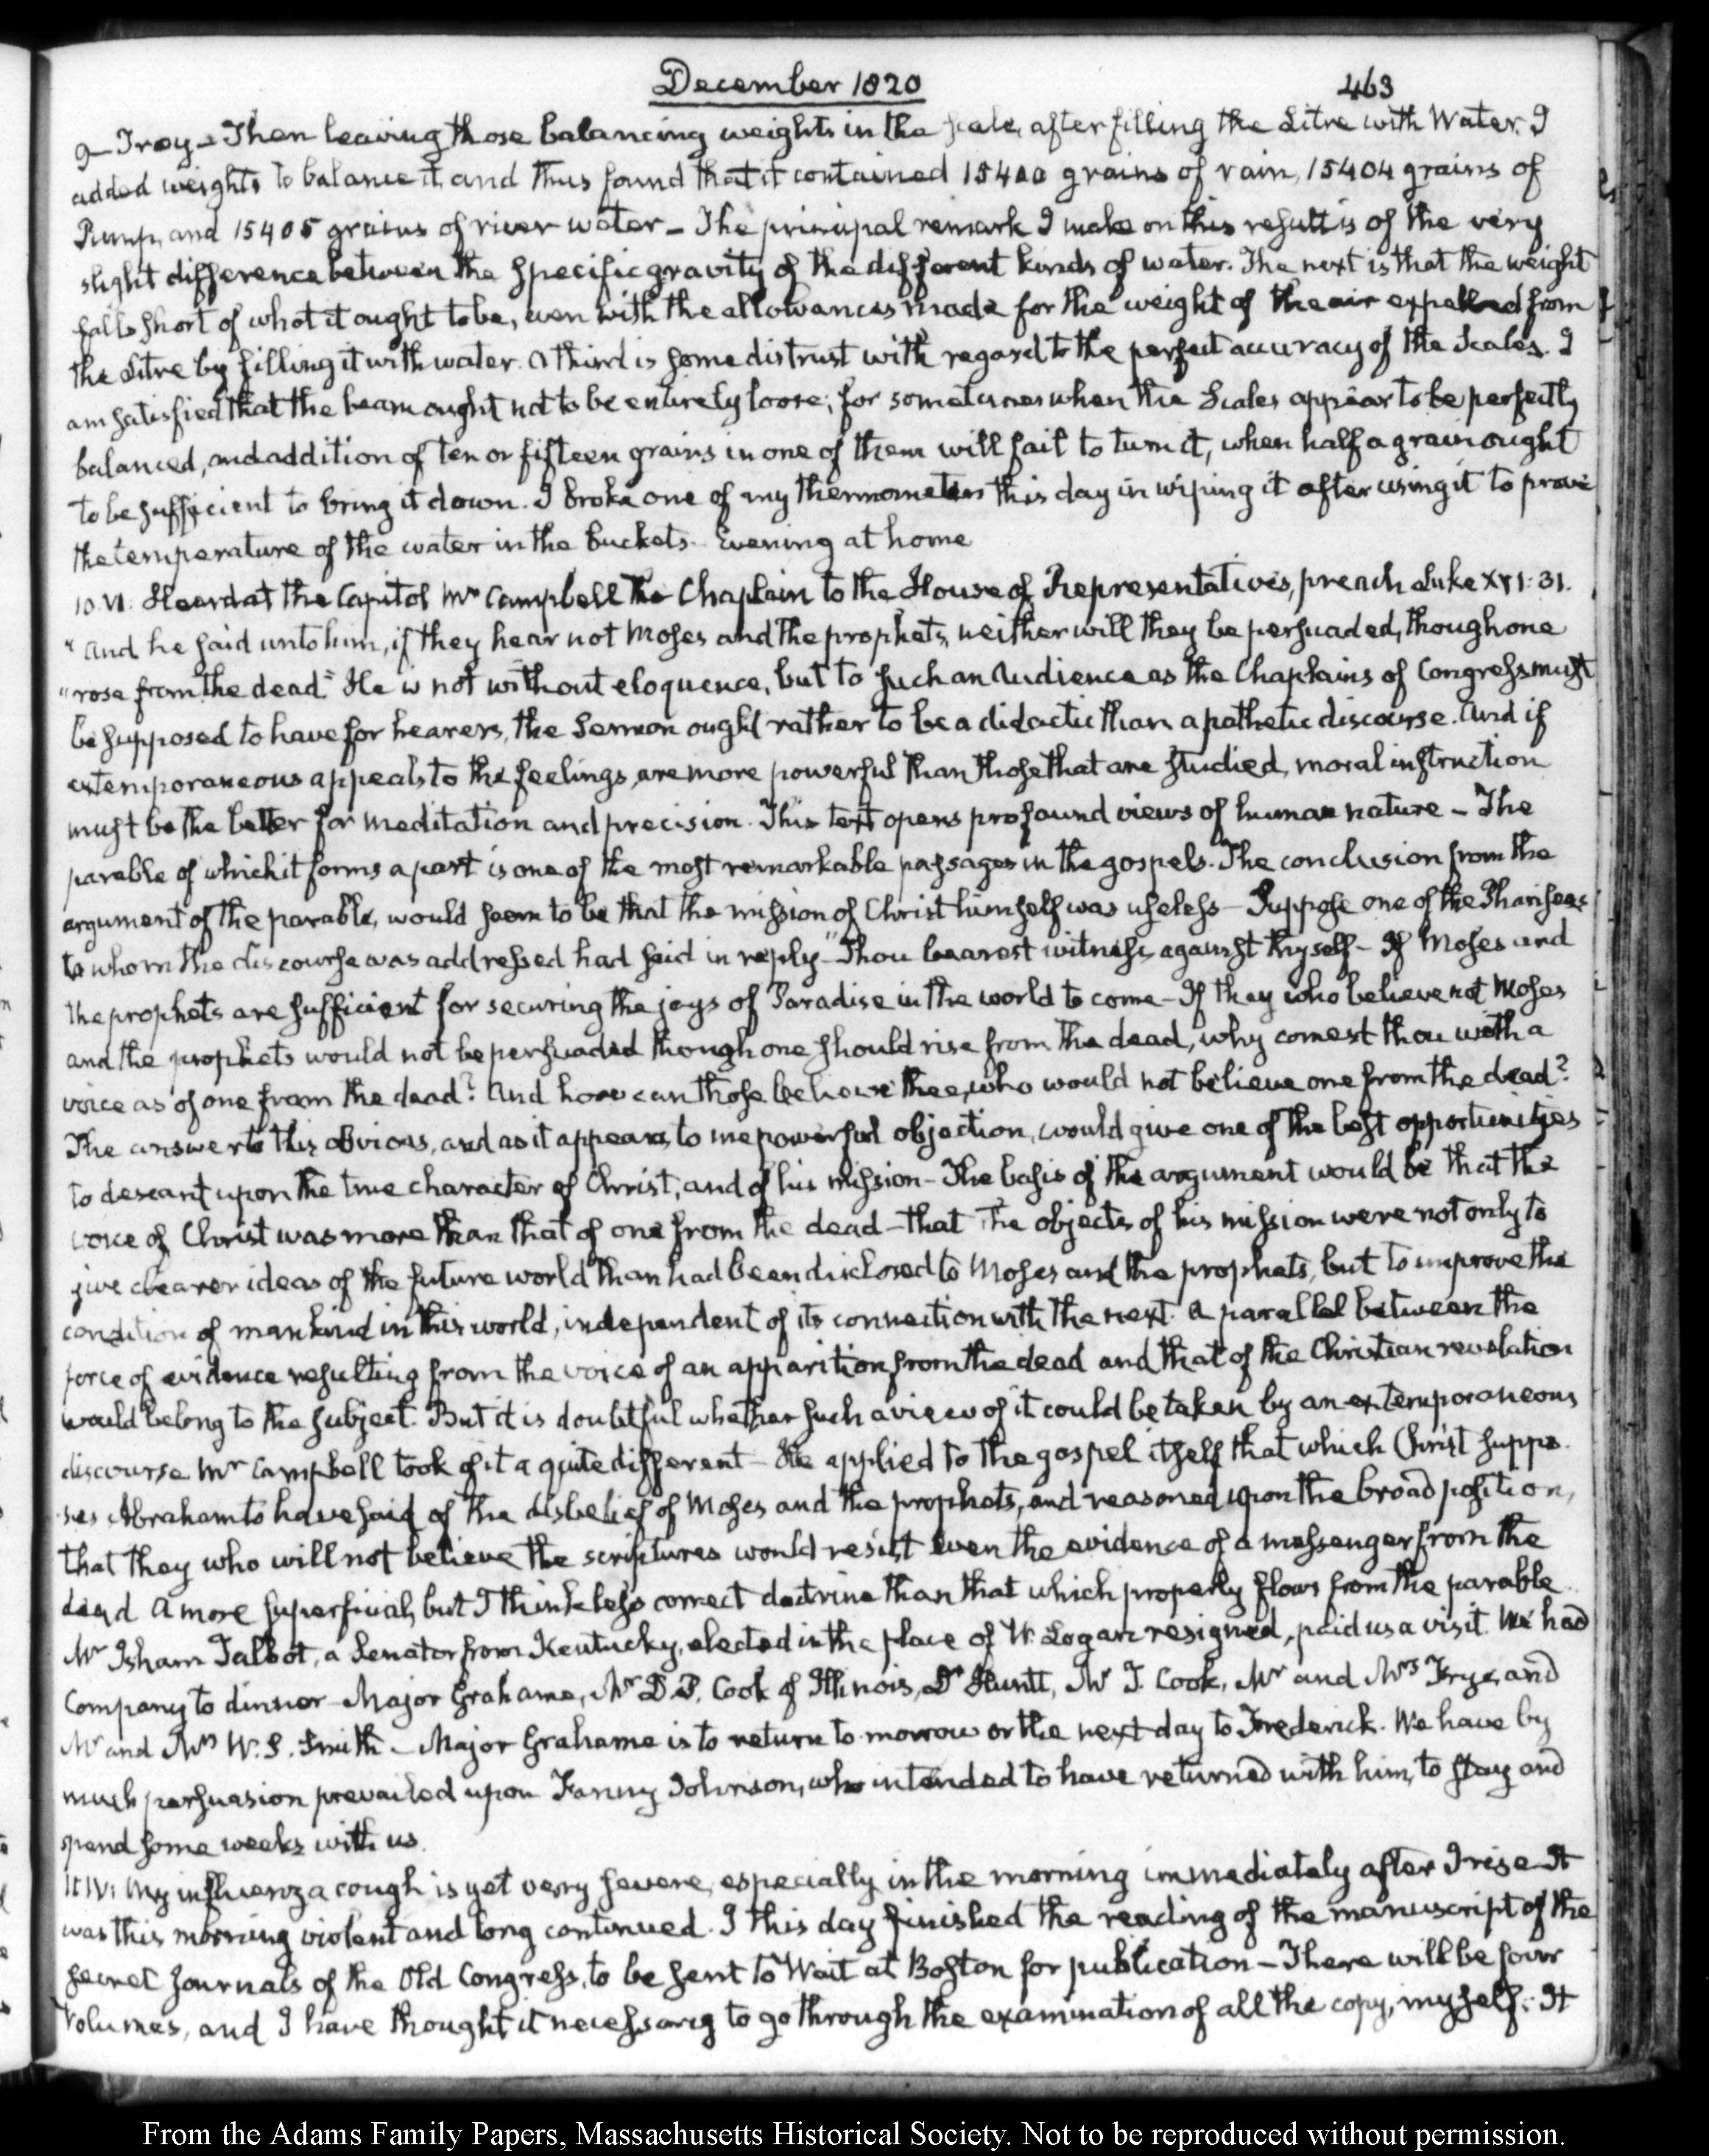 December 1820
463
9— Troy — Then leaving those balancing weights in the scale, after filling the Litre with Water, I
added weights to balance it, and thus found that it contained 15400 grains of rain, 15404 grains of
Pump, and 15405 grains of river water — The principal remark I make on this result is of the very
slight difference between the specific gravity of the different kinds of water. The next is that the weight
falls short of what it ought to be, even with the allowances made for the weight of the air expelled from
the Litre by filling it with water. A third is some distrust with regard to the perfect accuracy of the Scales. I
am satisfied that the beam ought not to be entirely loose; for sometimes when the Scales appear to be perfectly
balanced, and addition of ten or fifteen grains in one of them will fail to turn it, when half a grain ought
to be sufficient to bring it down. I broke one of my thermometers this day in wiping it after using it to prove
the temperature of the water in the buckets. Evening at home
10. VI. Heard at the Capitol Mr Campbell the Chaplain to the House of Representatives, preach Luke XVI. 31.
"And he said unto him, if they hear not Moses and the prophets, neither will they be persuaded, though one
"rose from the dead." He is not without eloquence, but to such an Audience as the Chaplains of Congress must
be supposed to have for hearers, the Sermon ought rather to be a didactic than a pathetic discourse. And if
extemporaneous appeals to the feelings, are more powerful than those that are studied, moral instruction
must be the better for meditation and precision. This text opens profound views of human nature — The
parable of which it forms a part is one of the most remarkable passages in the gospels. The conclusion from the
argument of the parable, would seem to be that the mission of Christ himself was useless — Suppose one of the Pharisees
to whom the discourse was addressed had said in reply "Thou bearest witness against thyself — If Moses and
the prophets are sufficient for securing the joys of Paradise in the world to come — If they who believe not Moses
and the prophets would not be persuaded though one should rise from the dead, why comest thou with a
voice as of one from the dead? And how can those believe thee, who would not believe one from the dead?
The answer to this obvious, and as it appears to me powerful objection, would give one of the best opportunities
to descant upon the true character of Christ, and of his mission — The basis of the argument would be that the
voice of Christ was more than that of one from the dead — that the objects of his mission were not only to
give clearer ideas of the future world than had been disclosed to Moses and the prophets, but to improve the
condition of mankind in this world, independent of its connection with the next. A parallel between the
force of evidence resulting from the voice of an apparition from the dead and that of the Christian revelation
would belong to the subject. But it is doubtful whether such a view of it could be taken by an extemporaneous
discourse. Mr Campbell took of it a quite different — He applied to the gospel itself that which Christ suppo-
ses Abraham to have said of the disbelief of Moses and the prophets, and reasoned upon the broad position,
that they who will not believe the scriptures would resist even the evidence of a messenger from the
dead. A more superficial, but I think less correct doctrine than that which properly flows from the parable.
Mr Isham Talbot, a Senator from Kentucky, elected in the place of W. Logan resigned, paid us a visit. We had
Company to dinner — Major Grahame, Mr D. P. Cook of Illinois, Dr Huntt, Mr J. Cook, Mr and Mrs Frye, and
Mr and Mrs W. S. Smith — Major Grahame is to return to morrow or the next day to Frederick. We have by
much persuasion prevailed upon Fanny Johnson, who intended to have returned with him, to stay and
spend some weeks with us.
11 IV: My influenza cough is yet very severe, especially in the morning immediately after I rise — It
was this morning violent and long continued. I this day finished the reading of the manuscript of the
secret Journals of the Old Congress, to be sent to Wait at Boston for publication — There will be four
Volumes, and I have thought it necessary to go through the examination of all the copy, myself. It
From the Adams Family Papers, Massachusetts Historical Society. Not to be reproduced without permission.